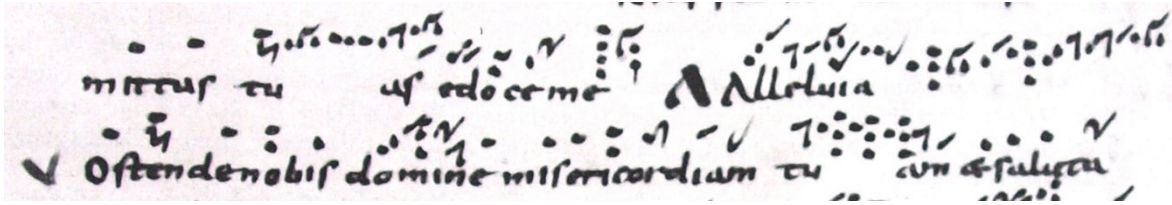 mittas tu as edoceme A Alleluia
V Ostendenobis domine misericordiam tu am & saluta